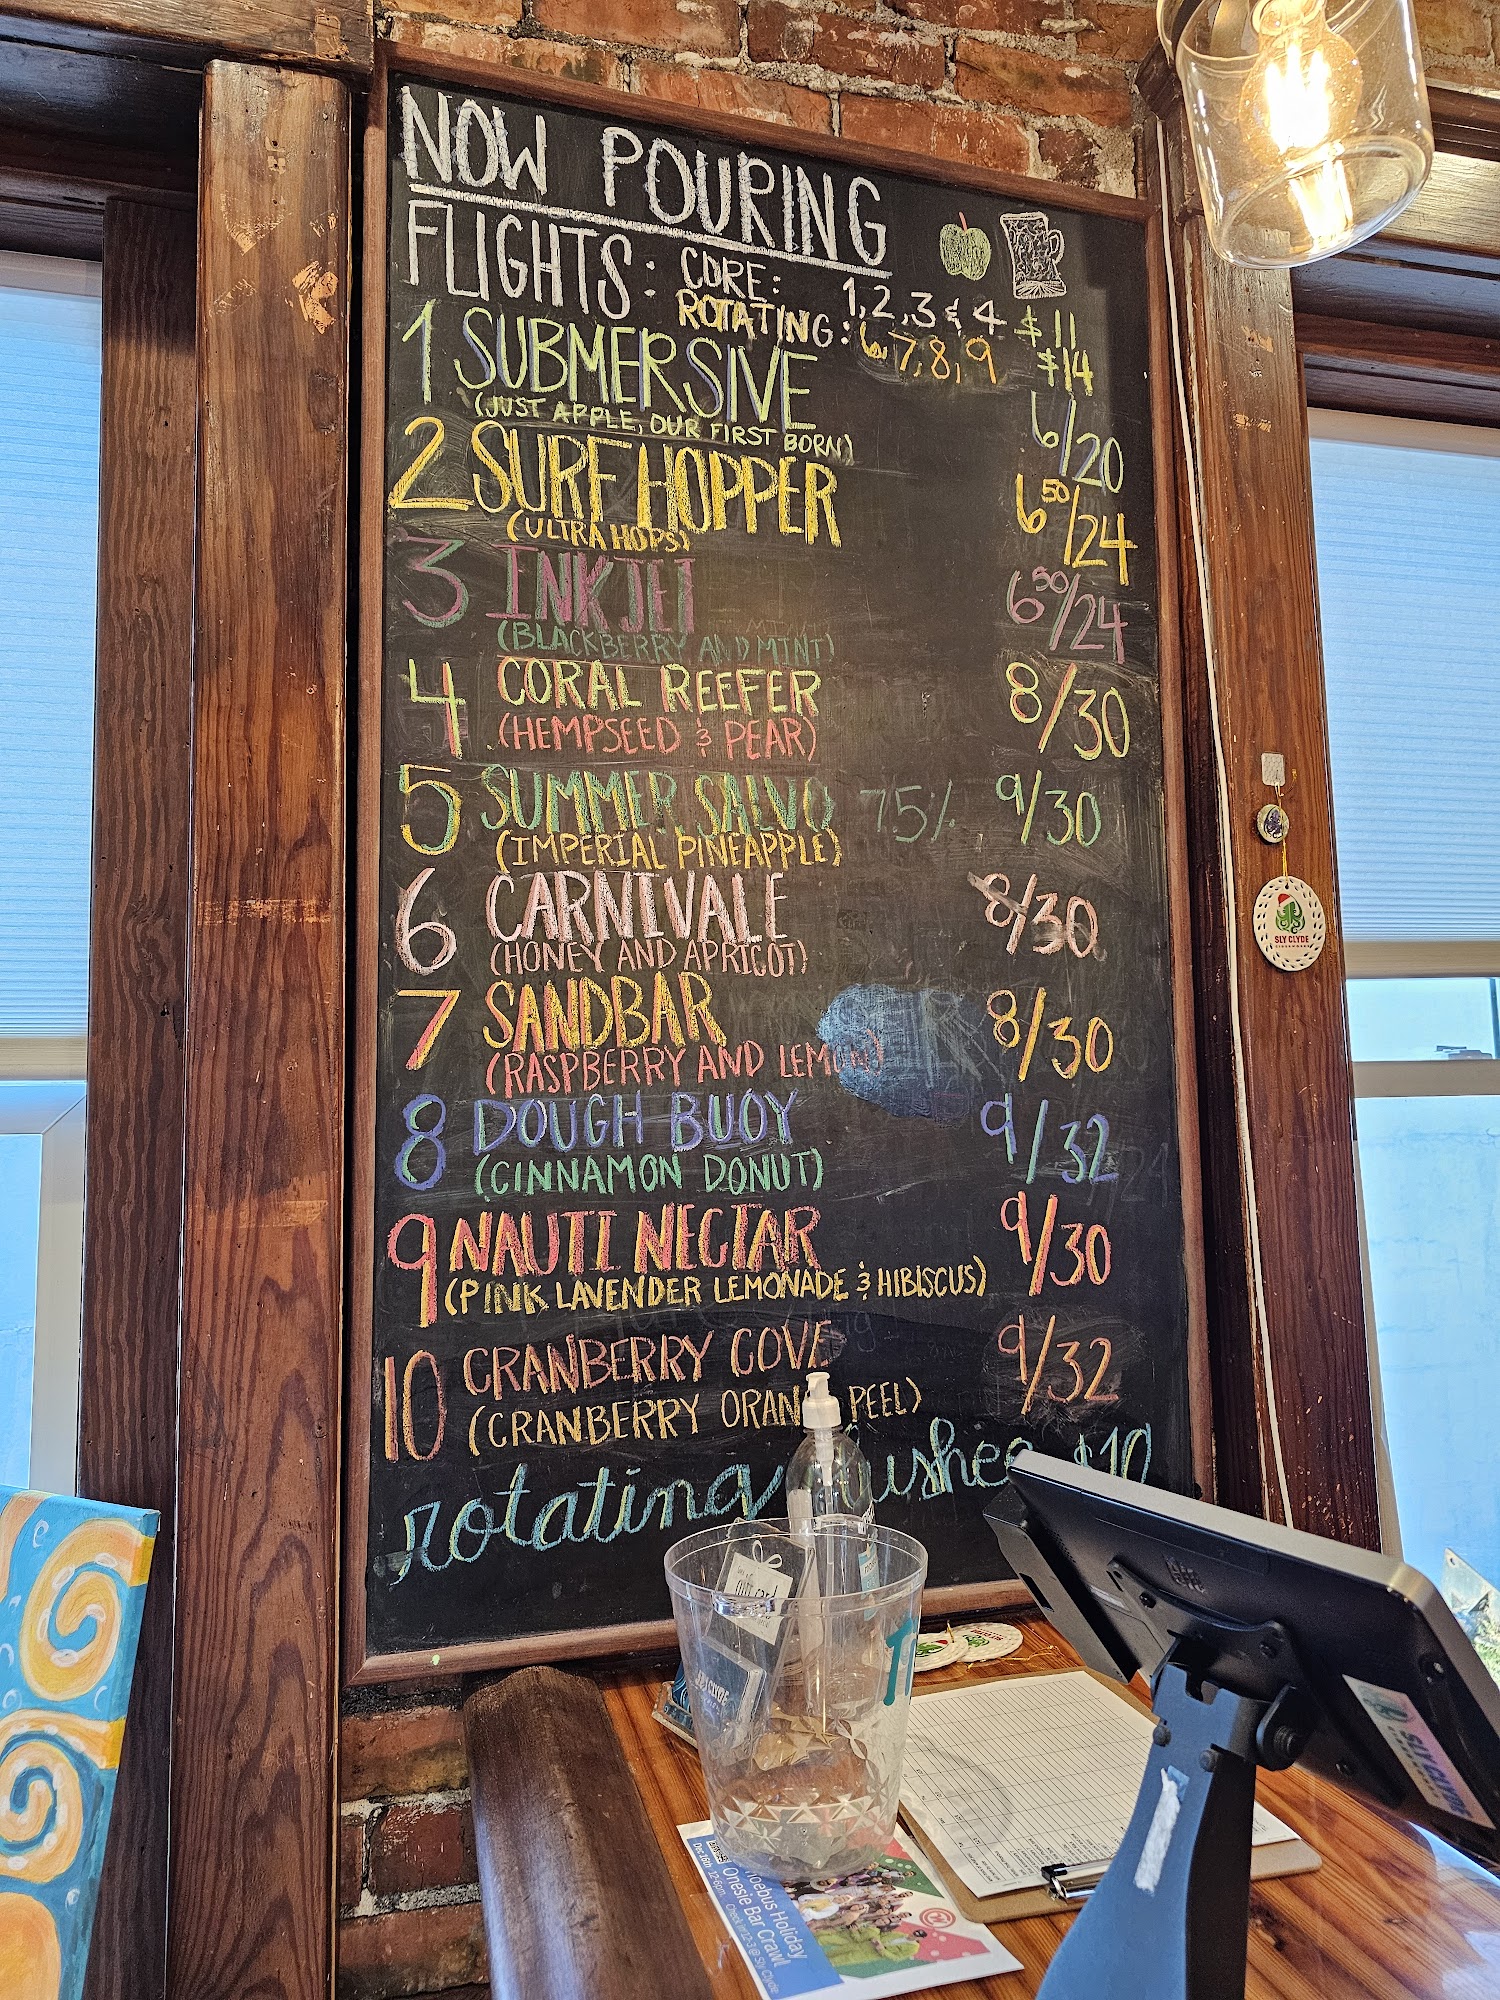 NOW POURING
FLIGHTS: CORE: 1, 2, 3 & 4 $11
ROTATING: 6, 7, 8, 9 $14
1 SUBMERSIVE 6/20
(JUST APPLE, OUR FIRST BORN)
2 SURF HOPPER 6 50/24
(ULTRA HOPS)
3 INKJET 6 50/24
(BLACKBERRY AND MINT)
4 CORAL REEFER 8/30
(HEMPSEED & PEAR)
5 SUMMER SALVO 75% 9/30
(IMPERIAL PINEAPPLE)
6 CARNIVALE 8/30
(HONEY AND APRICOT)
7 SANDBAR 8/30
(RASPBERRY AND LEMON)
8 DOUGH BUOY 9/32
(CINNAMON DONUT)
9 NAUTI NECTAR 9/30
(PINK LAVENDER LEMONADE & HIBISCUS)
10 CRANBERRY COVE 9/32
(CRANBERRY ORANGE PEEL)
rotating $10
SLY CLYDE
gift card
SLY CLYDE
Phoebus Holiday
Onesie Bar Crawl
Dec. 16th 12-6pm. Check in 12-3 @ Sly Clyde